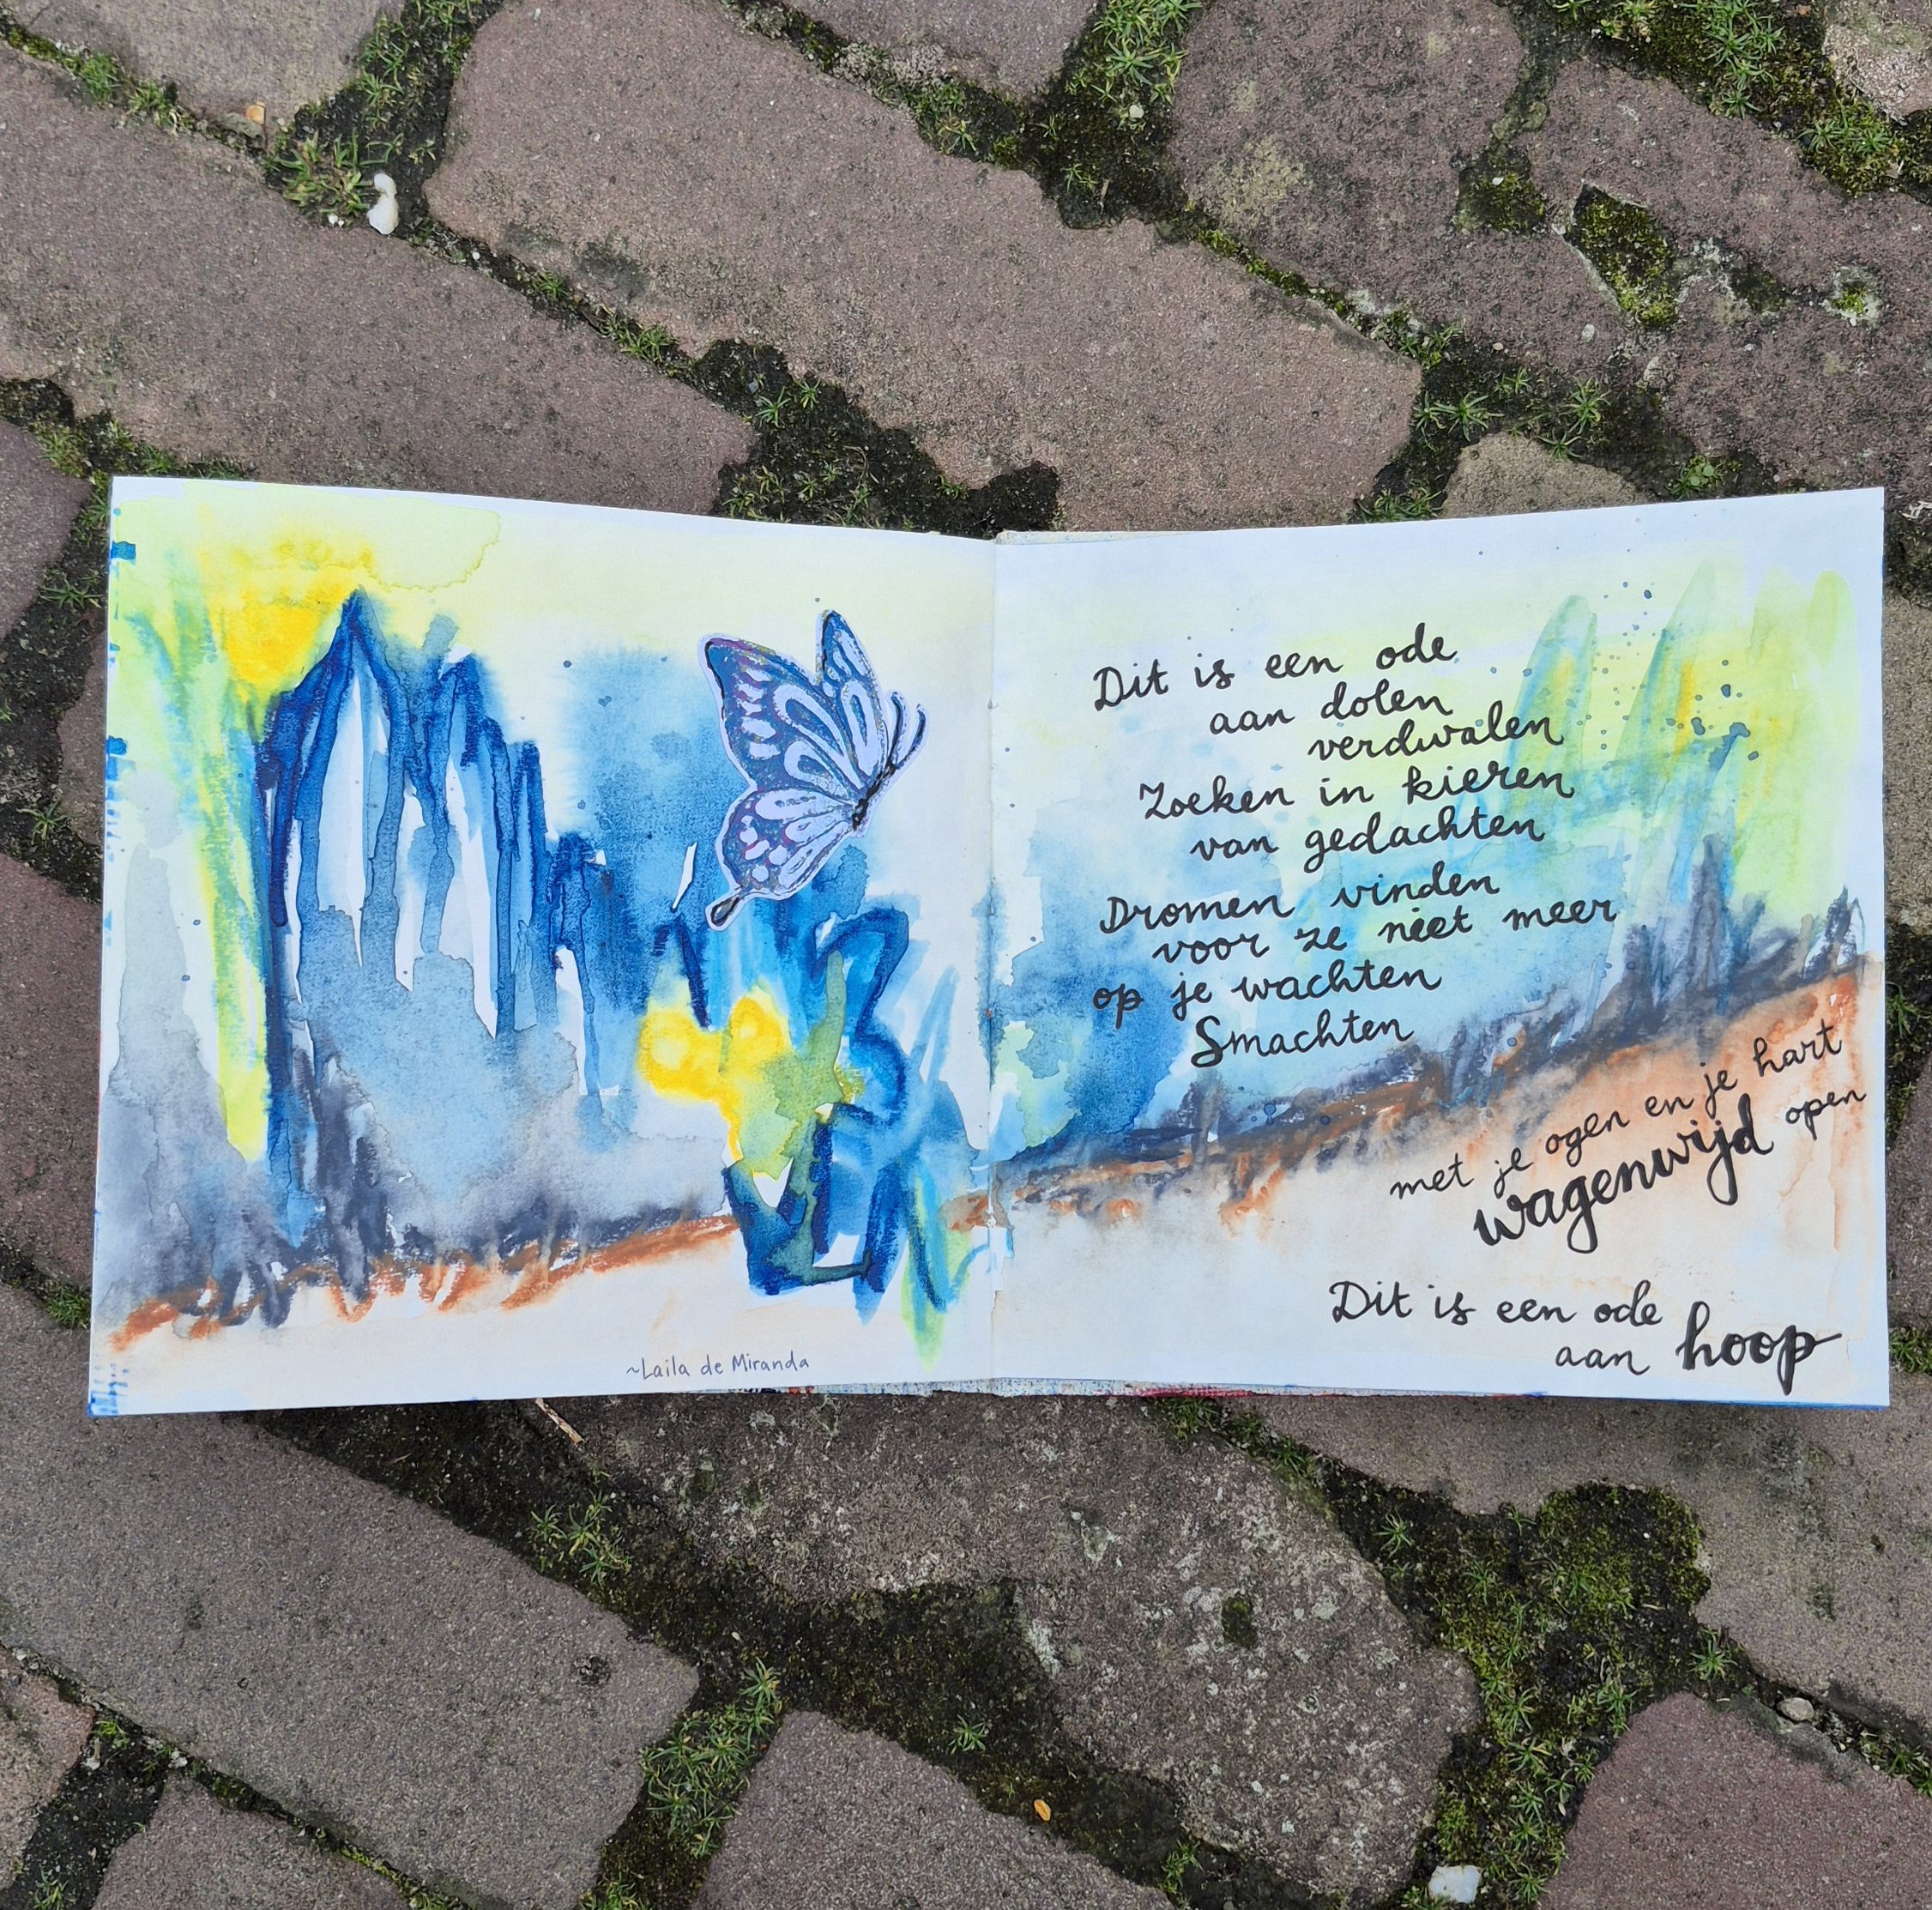 Dit is een ode
aan dolen
verdwalen
Zoeken in kieren
van gedachten
Dromen vinden
voor ze niet meer
op je wachten
Smachten
met je ogen en je hart
wagenwijd open
Dit is een ode
aan hoop
~Laila de Miranda